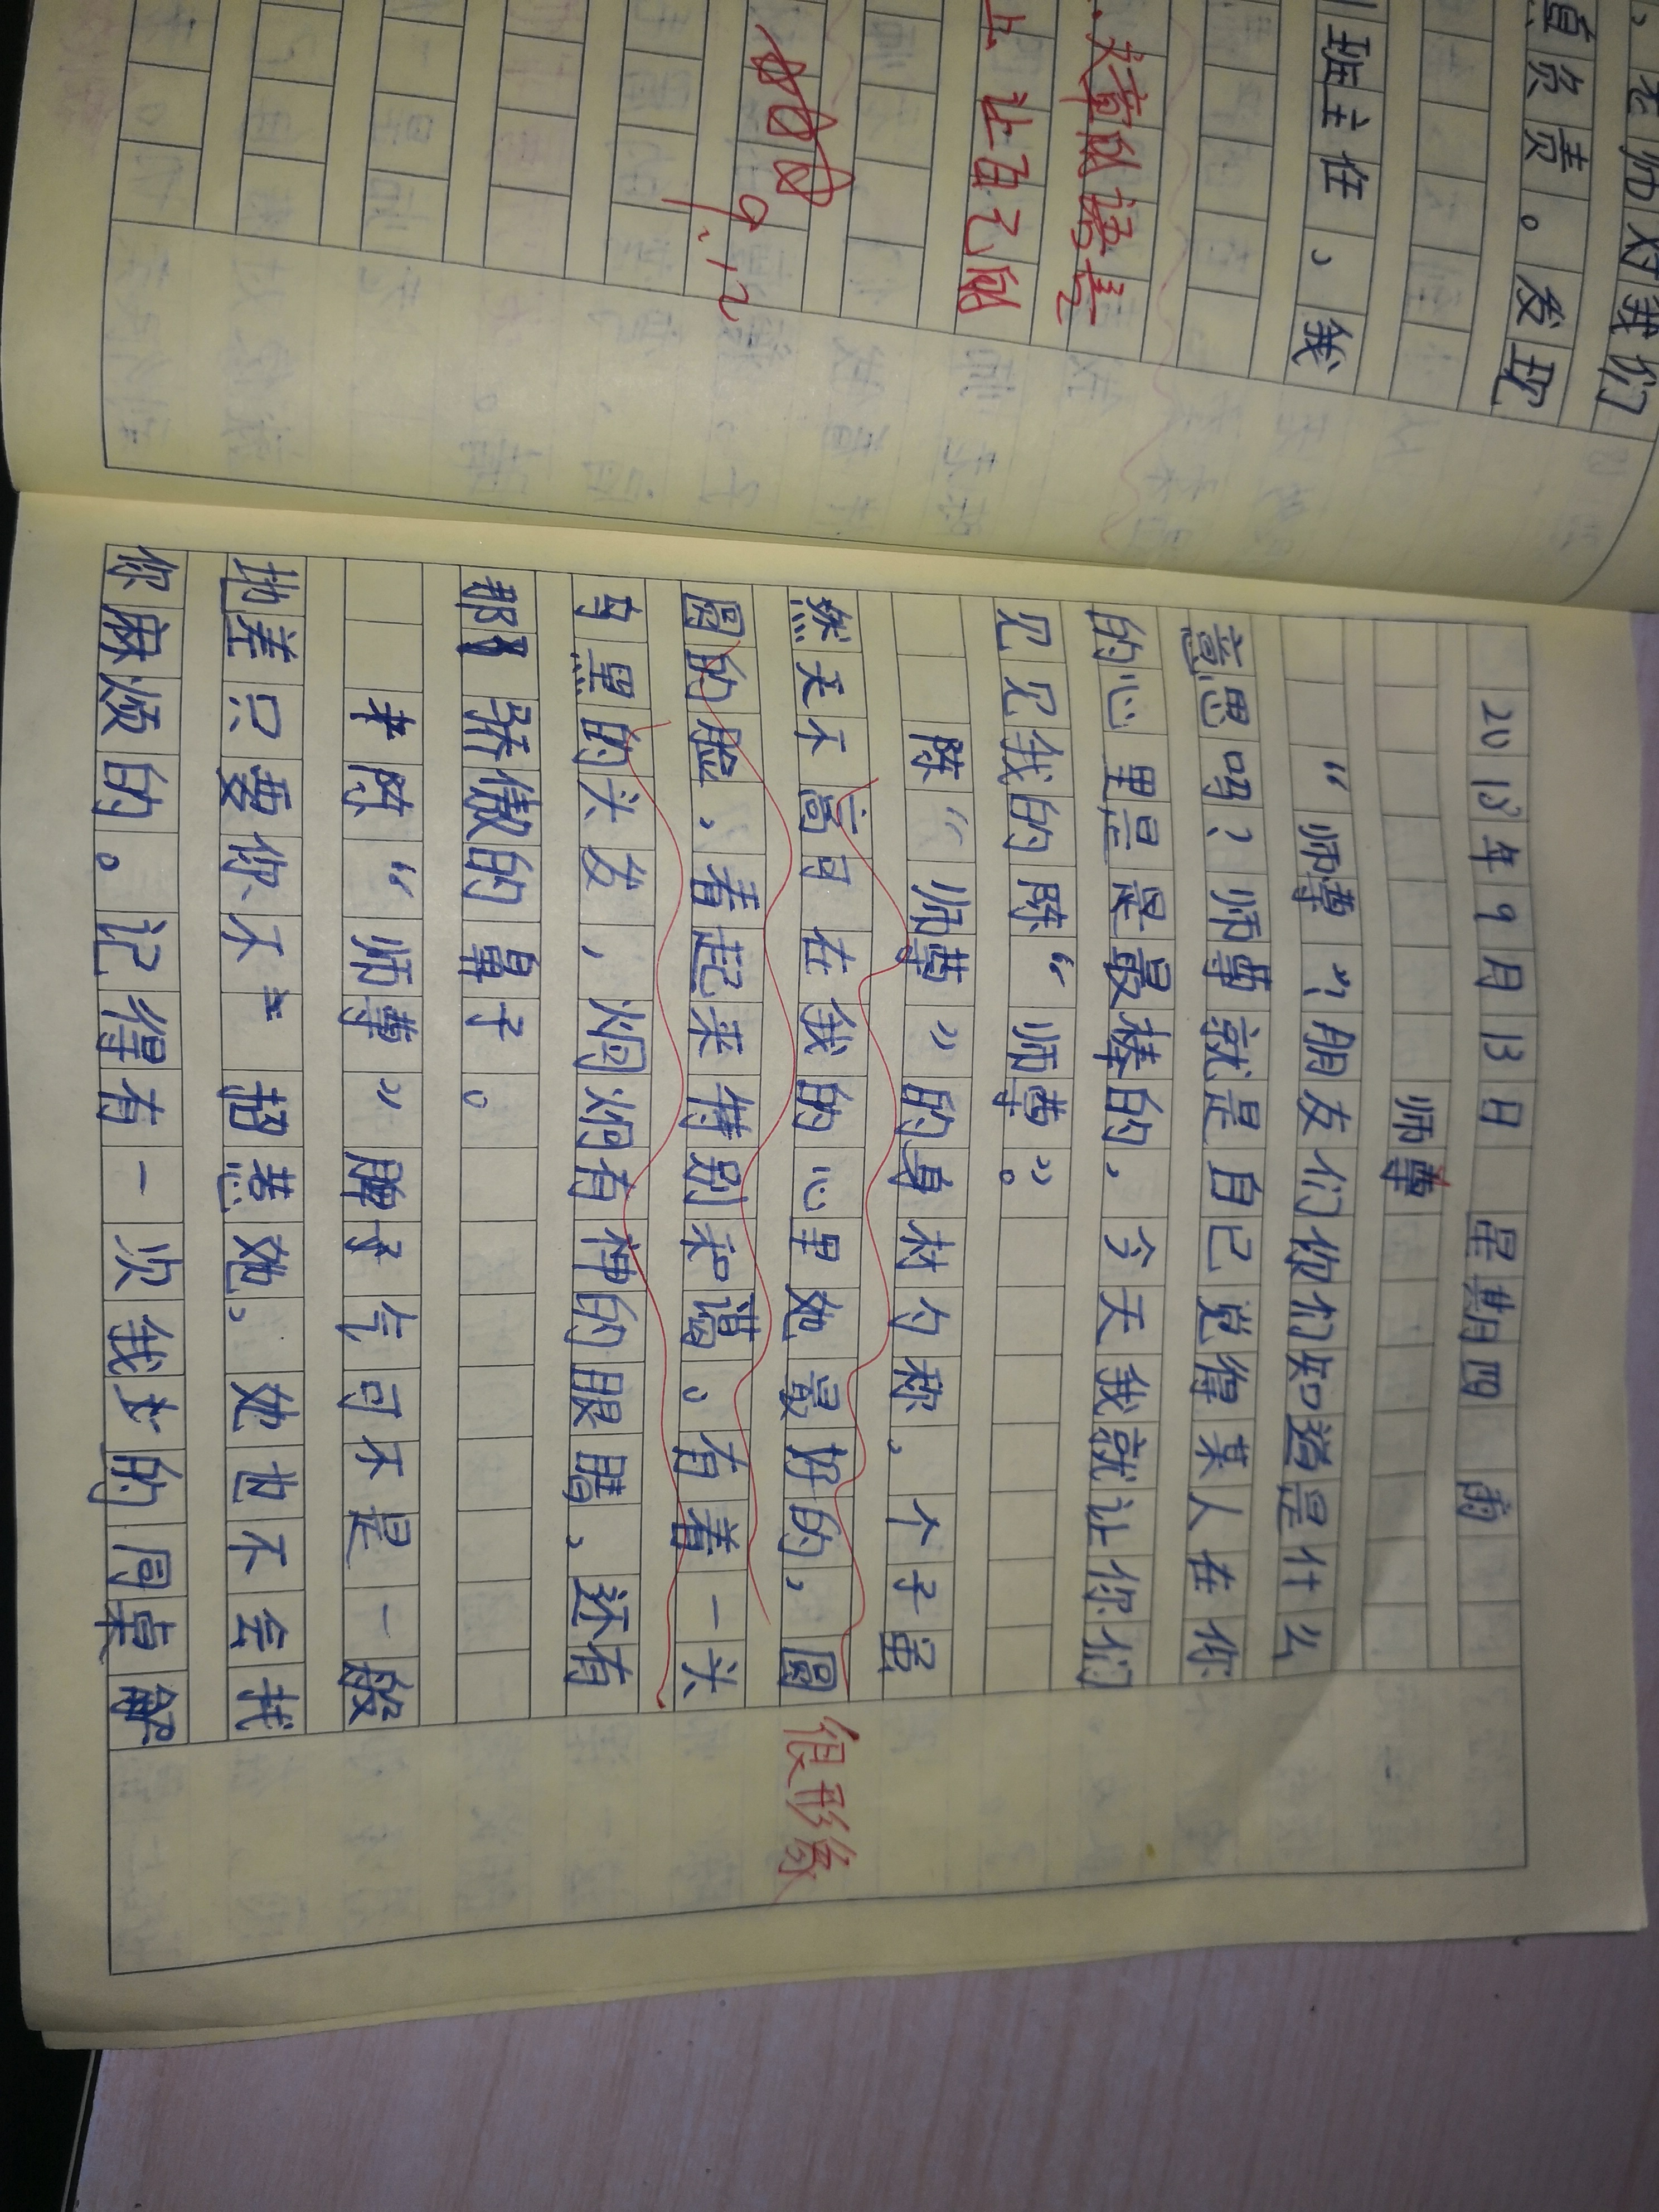 、老师对我们
真负责。发现
班主任、我
文章的语言
上让自己的
9.12
2018年9月13日 星期四 雨
师尊
“师尊”，朋友们你们知道是什么
意思吗？师尊就是自己觉得某人在你
的心里是是最最棒的，今天我就让你们
见见我的陈“师尊”。
陈“师尊”的身材匀称，个子虽
然天不高可在我的心里她最好的，圆
圆的脸，看起来特别和谐。有着一头
乌黑的头发，炯炯有神的眼睛，还有
那骄傲的鼻子。
陈“师尊”脾气可不是一般
地差只要你不招惹她，她也不会找
你麻烦的。记得有一次我的同桌解
很形象